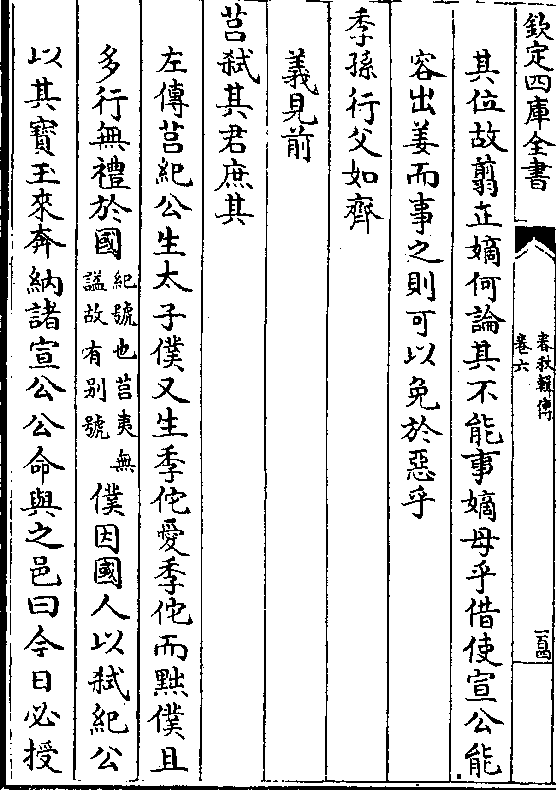 欽定四庫全書
春秋輯傳
卷六
其位故翦立嫡何論其不能事嫡母乎借使宣公能
容出姜而事之則可以免於惡乎
季孫行父如齊
義見前
莒弑其君庶其
左傳莒紀公生太子僕又生季佗愛季佗而黜僕且
多行無禮於國紀號也莒夷無諡故有别號僕因國人以弑紀公
以其寳玉來奔納諸宣公公命與之邑曰今日必授